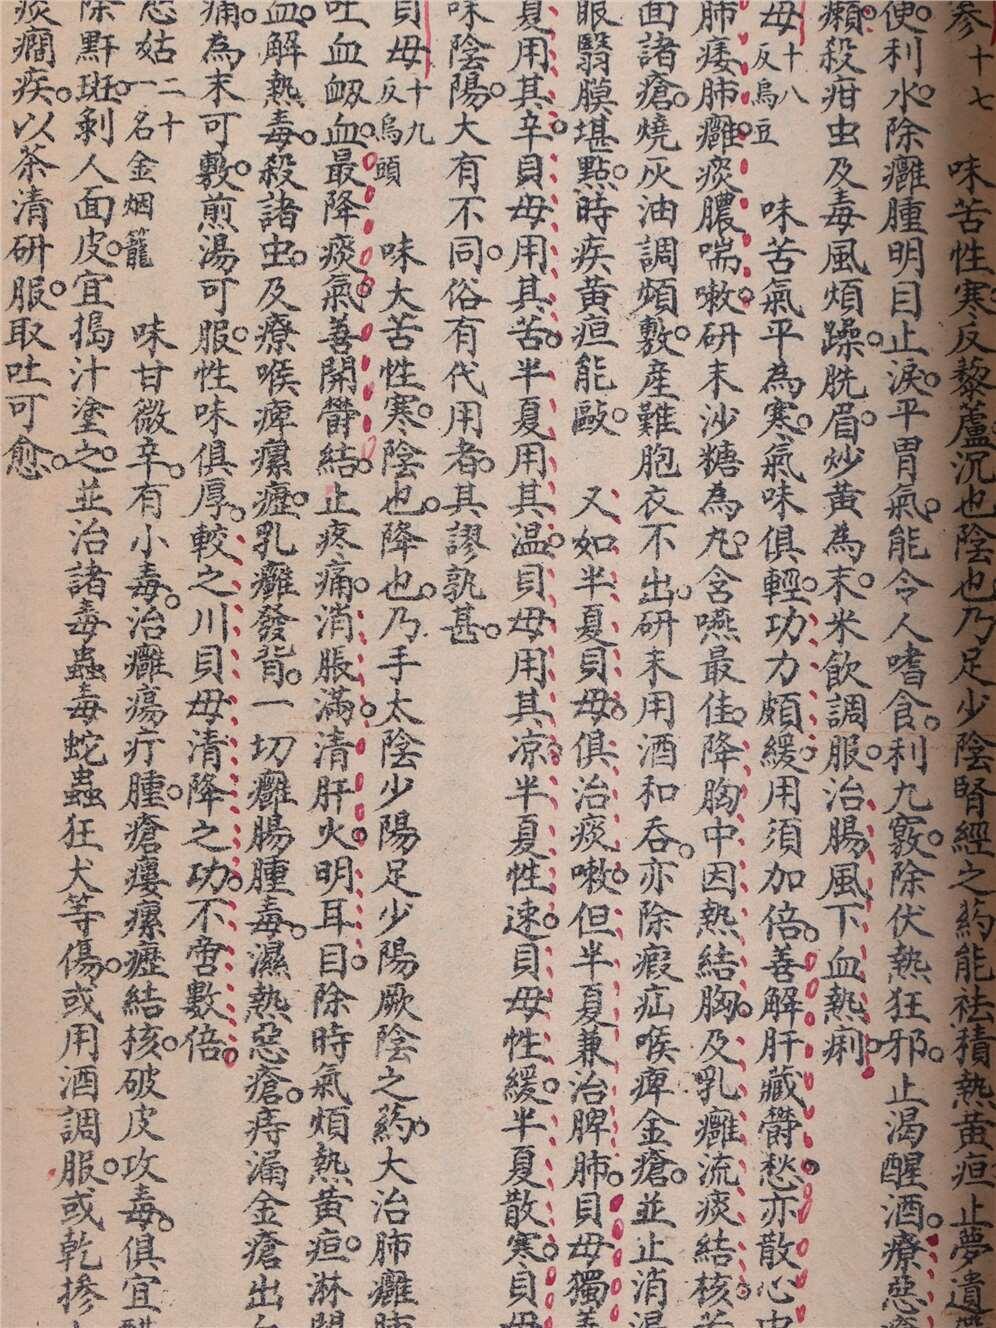 參十七 味苦性寒反藜蘆沉也陰也乃足少陰腎經之药能祛積熱黃疸止夢遺
便利水。除癰腫明目止淚。平胃氣。能令人嗜食。利九竅。除伏熱狂邪。止渴醒酒。療惡
癩。殺疳虫及毒風煩躁。脱眉。炒黃為末。米飲調服。治腸風下血熱痢。
母十八反烏豆 味苦氣平為寒。氣味俱輕。功力頗緩。用須加倍。善解肝藏欝愁亦散心中
肺痿肺癰。痰膿喘嗽。研末沙糖為丸。含嚥最佳。降胸中因熱結胸。及乳癰流痰結核。
面諸瘡。燒灰油調頻敷。産難胞衣不出。研末用酒和吞。亦除瘕疝喉痺金瘡。並止消渴
眼翳膜堪點。時疾黃疸能敺。 又如半夏貝母。俱治痰嗽。但半夏兼治脾肺。貝母獨善
夏用其辛。貝母用其苦。半夏用其温。貝母用其凉。半夏性速。貝母性緩。半夏散寒。貝母
味陰陽。大有不同。俗有代用者。其謬孰甚。
貝母十九反烏頭 味大苦性寒。陰也。降也。乃手太陰少陽足少陽厥陰之药。大治肺癰肺
吐血衂血。最降痰氣。善開欝結。止疼痛。消脹滿。清肝火。明耳目。除時氣煩熱黃疸。淋閉
血。解熱毒。殺諸虫。及療喉痺瘰癧。乳癰發背。一切癰腸腫毒。濕熱惡瘡。痔漏金瘡出
痛。為末可敷。煎湯可服。性味俱厚。較之川貝母清降之功。不啻數倍。
慈姑二十一名金烟籠 味甘微辛。有小毒。治癰瘍疔腫。瘡瘻瘰癧結核。破皮攻毒。俱宜醋
除䵟斑。剝人面皮。宜搗汁塗之。並治諸毒蟲毒蛇蟲狂犬等傷。或用酒調服。或乾摻
痰癇疾。以茶清研服。取吐可愈。